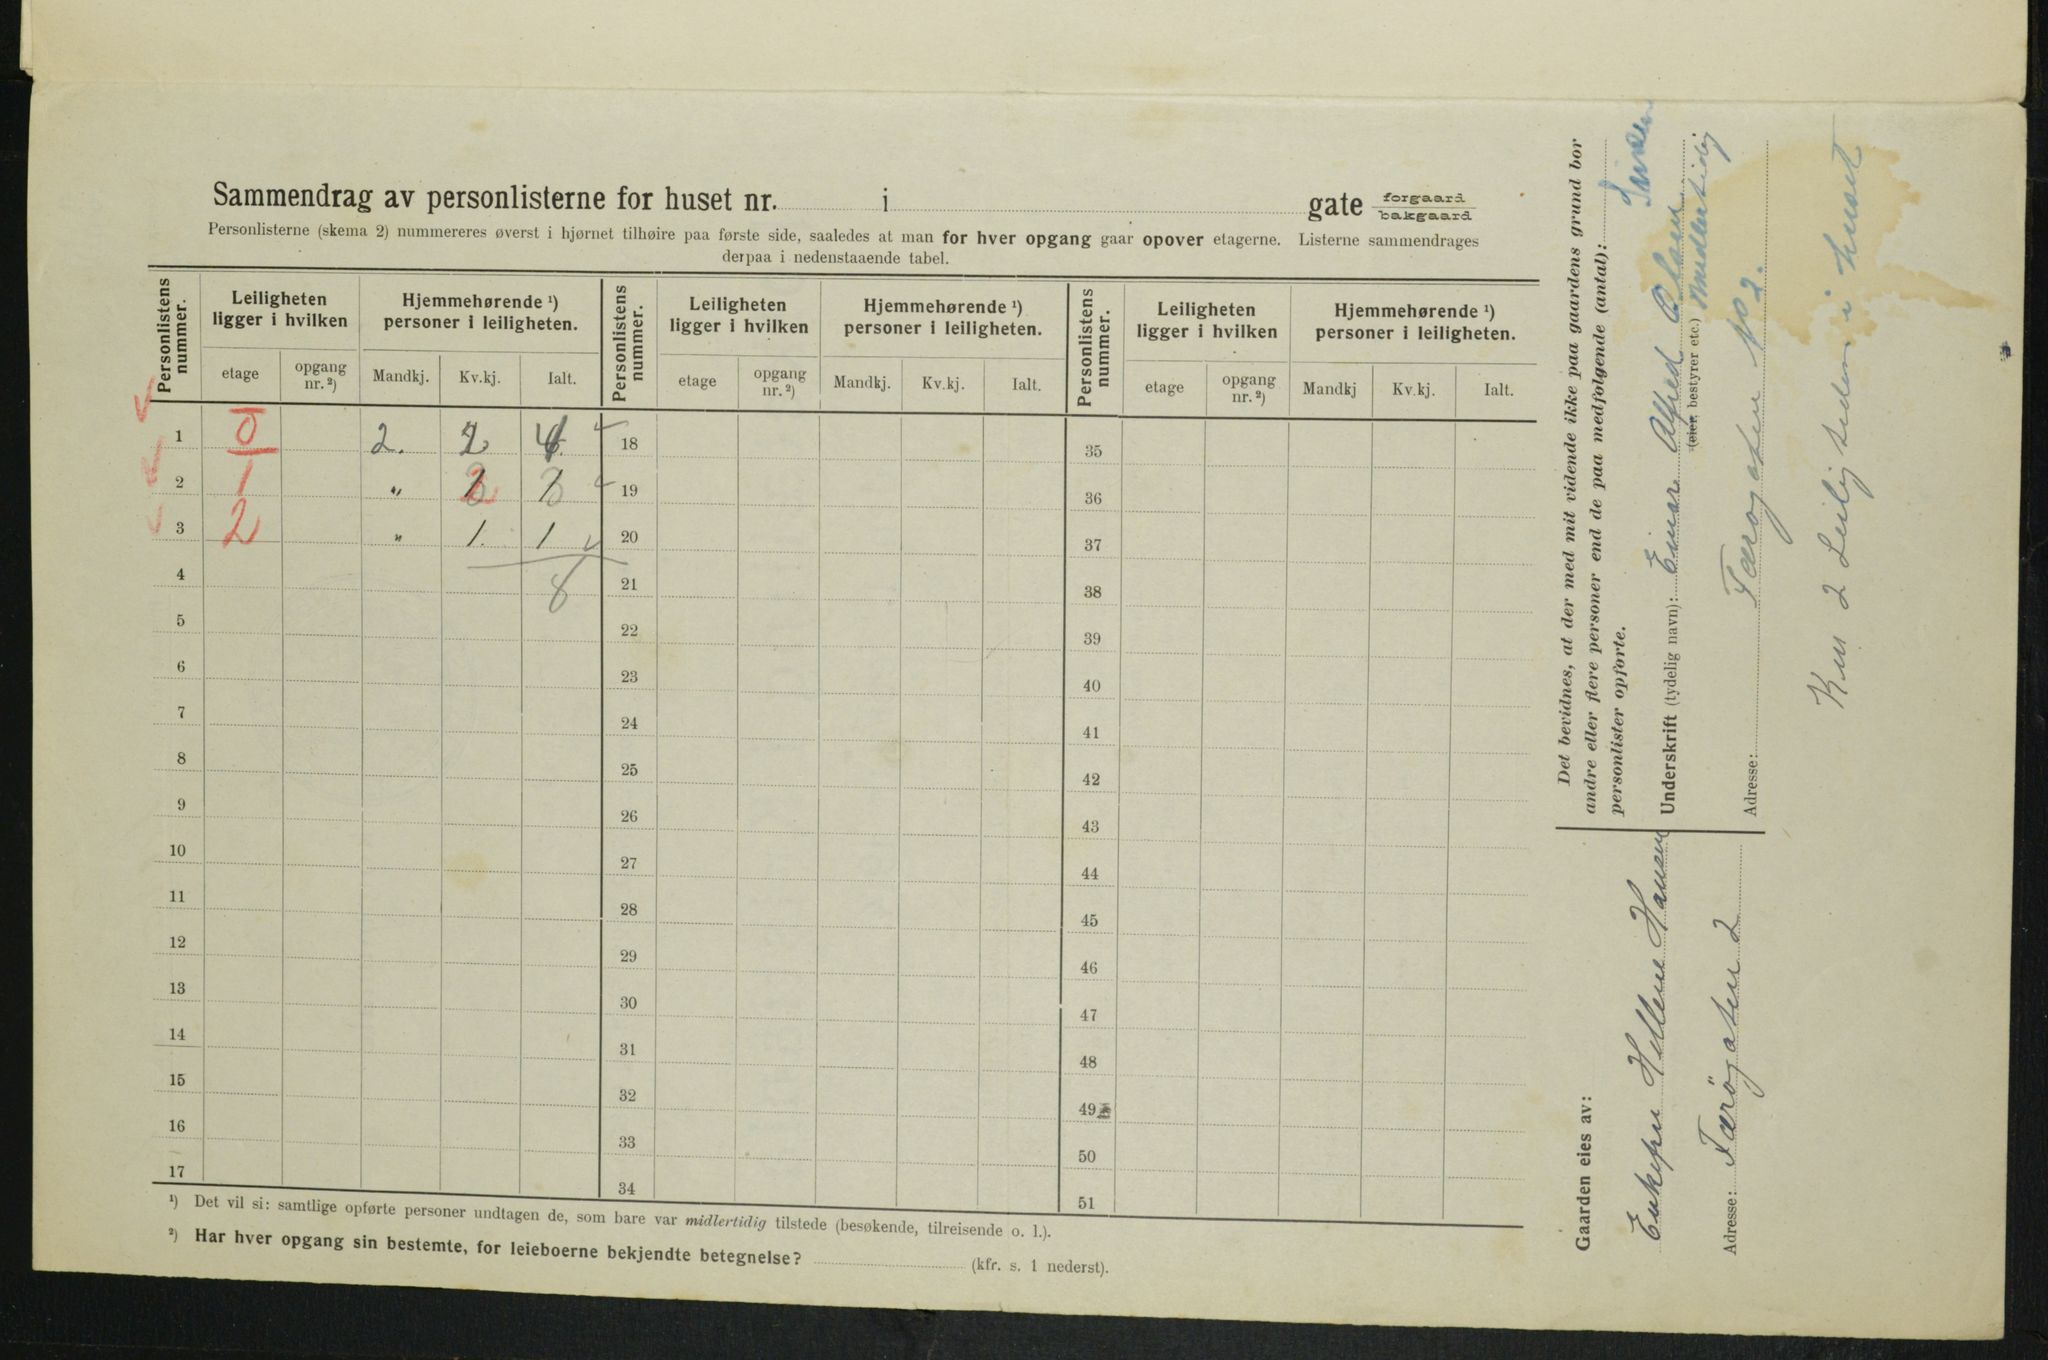 Sammendrag av personlisterne for huset nr. i gate forgaard bakgaard
Personlisterne (skema 2) nummereres øverst i hjørnet tilhøire paa første side, saaledes at man for hver opgang gaar opover etagerne. Listerne sammendrages
derpaa i nedenstaaende tabel.
Personlistens nummer. Leiligheten ligger i hvilken Hjemmehørende ¹) personer i leiligheten. Personlistens nummer. Leiligheten ligger i hvilken Hjemmehørende ¹) personer i leiligheten. Personlistens nummer. Leiligheten ligger i hvilken Hjemmehørende ¹) personer i leiligheten.
etage opgang nr. ²) Mandkj. Kv.kj. Ialt. etage opgang nr. ²) Mandkj. Kv.kj. Ialt. etage opgang nr. ²) Mandkj Kv.kj. Ialt.
1 0 2. 2 4. 18 35
2 1 " 3 3 19 36
3 2 " 1. 1 20 37
4 8 21 38
5 22 39
6 23 40
7 24 41
8 25 42
9 26 43
10 27 44
11 28 45
12 29 46
13 30 47
14 31 48
15 32 49
16 33 50
17 34 51
¹) Det vil si: samtlige opførte personer undtagen de, som bare var midlertidig tilstede (besøkende, tilreisende o. l.).
²) Har hver opgang sin bestemte, for leieboerne bekjendte betegnelse? (kfr. s. 1 nederst).
Det bevidnes, at der med mit vidende ikke paa gaardens grund bor
andre eller flere personer end de paa medfølgende (antal):
personlister opførte.
Underskrift (tydelig navn): Einar Alfred Olsen
(eier, bestyrer etc.) midlertidig
Adresse: Færogaten No 2.
Kun 2 Leiligheder i huset
Gaarden eies av:
Enkefru Hellene Hansen
Adresse: Færögaten 2